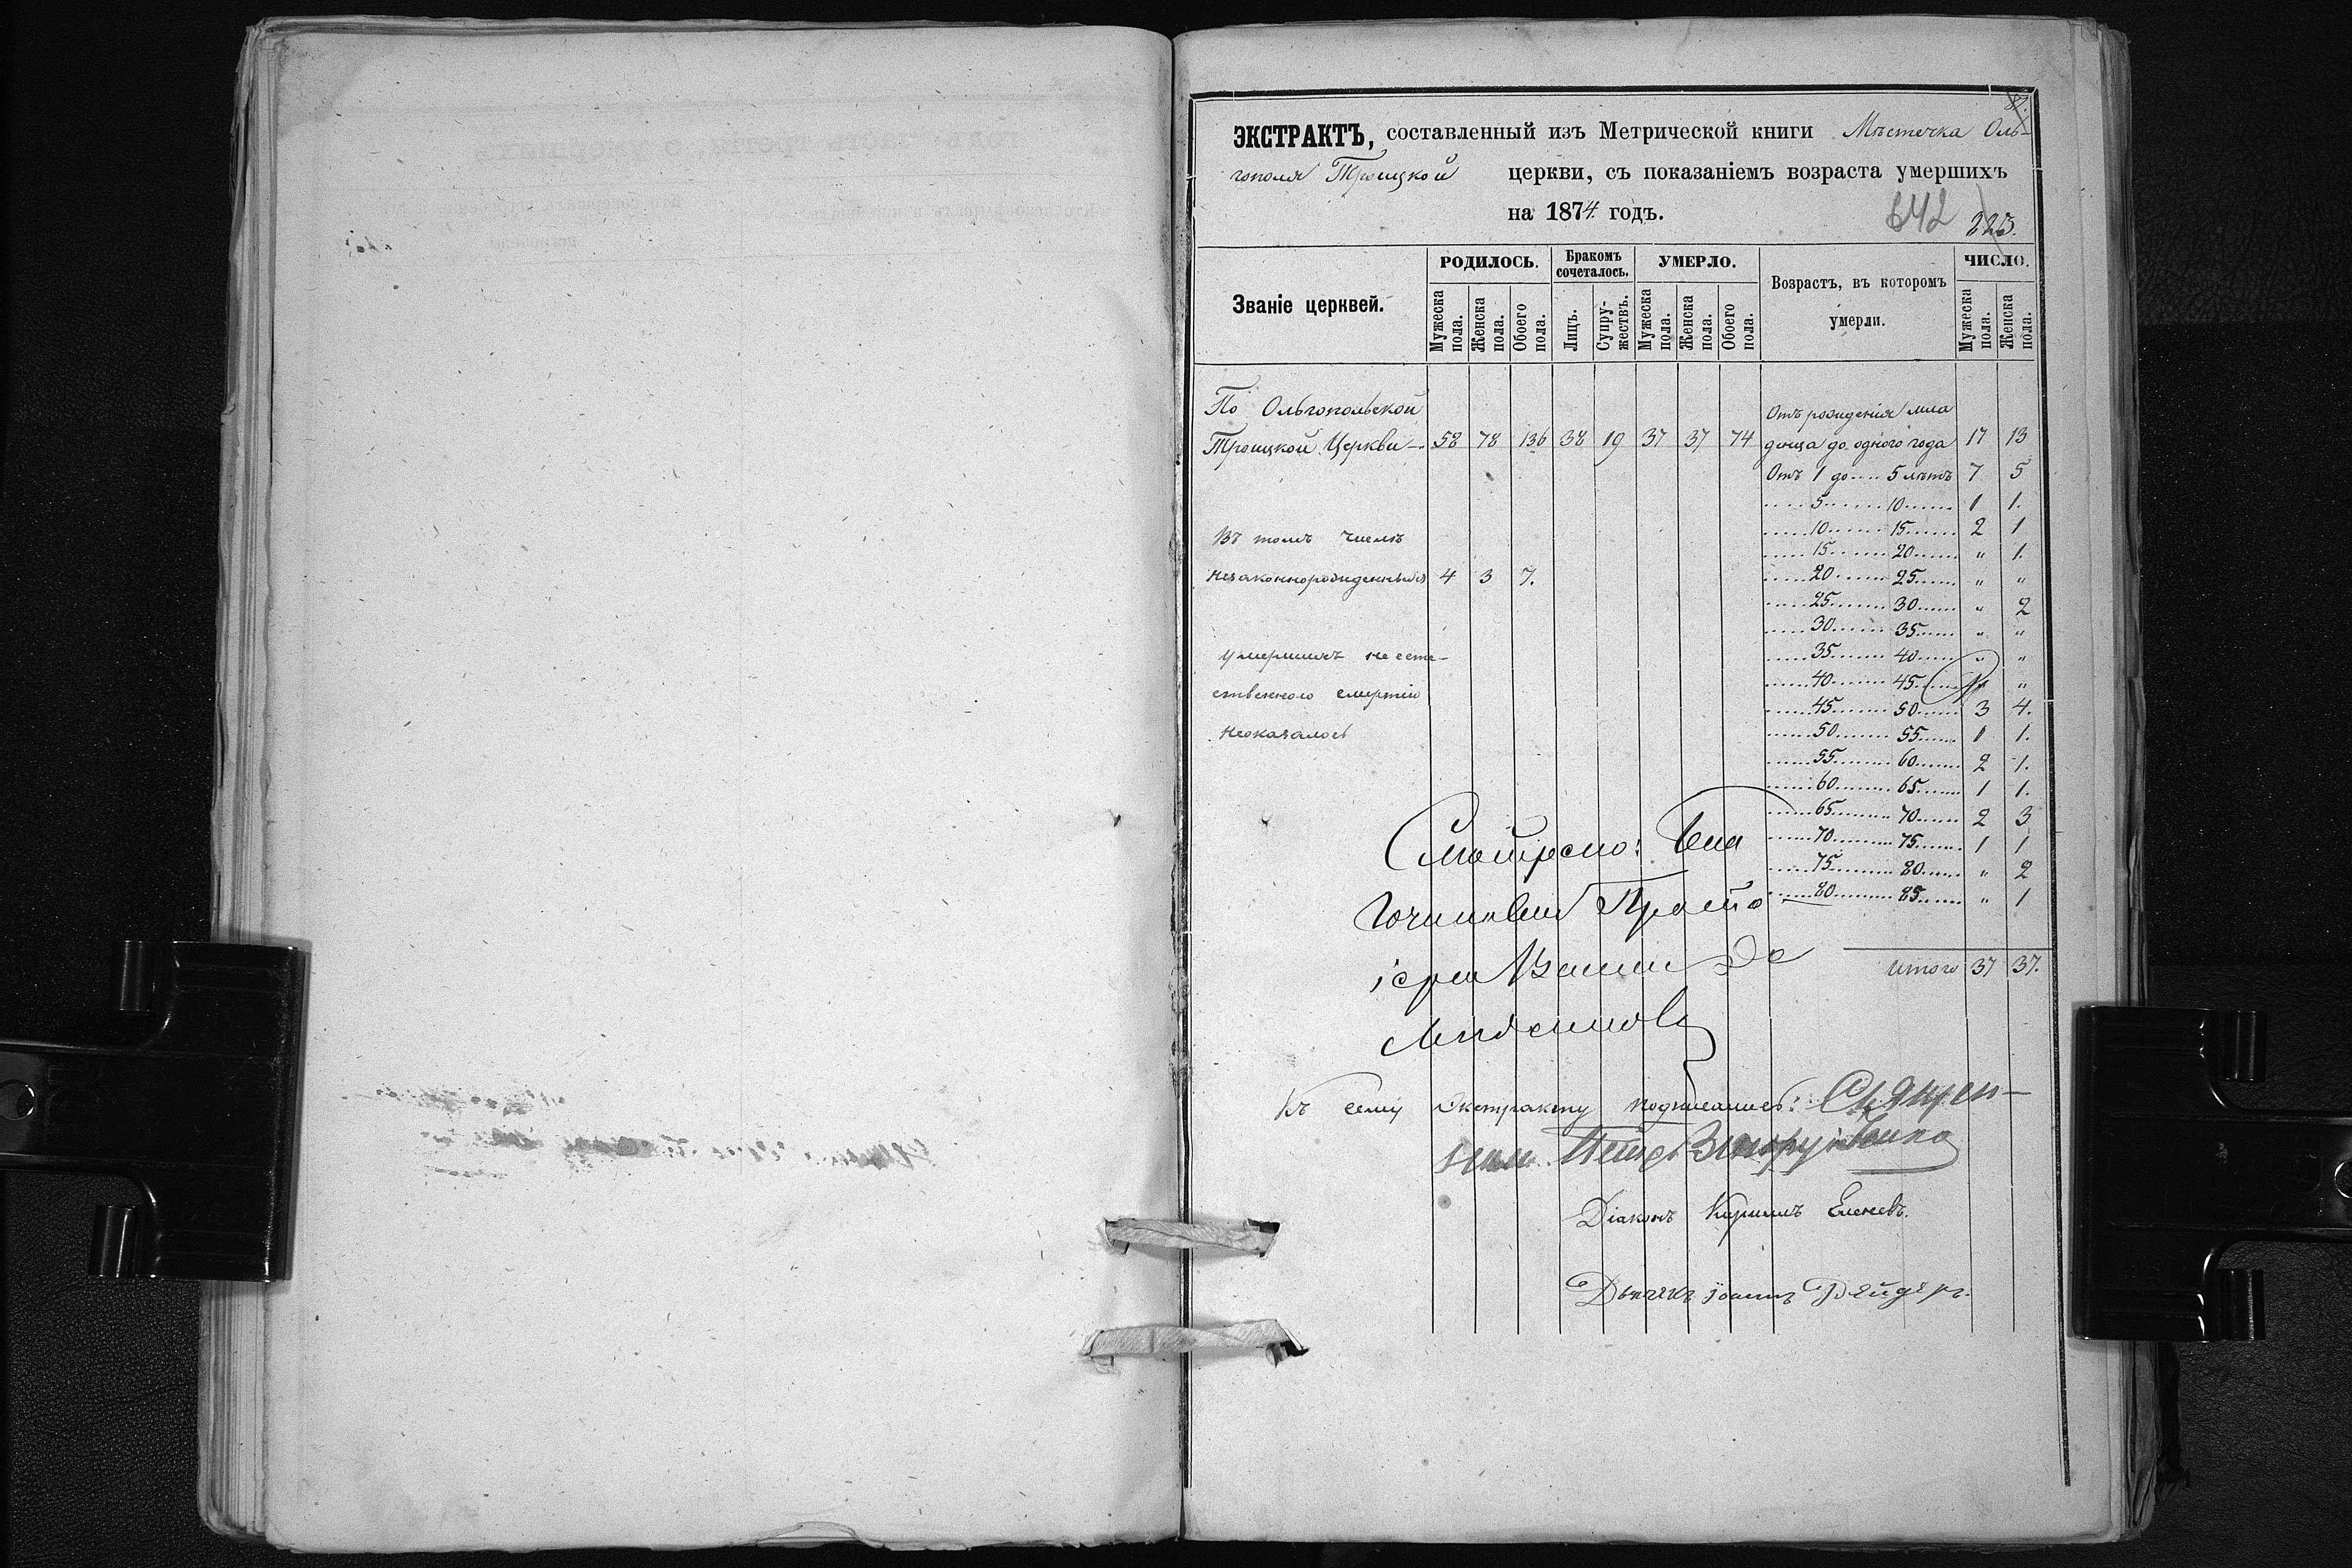 87.
ЭКСТРАКТЪ, составленный изъ Метрической книги Мѣстечка Оль-
гополя Троицкой церкви, съ показаніемъ возраста умершихъ
на 1874 годъ.
642 223.
Званіе церквей.
РОДИЛОСЬ. Бракомъ сочеталось. УМЕРЛО. Возрастъ, въ которомъ умерли. ЧИСЛО.
Мужеска пола. Женска пола. Обоего пола. Лицъ. Супружествъ. Мужеска пола. Женска пола. Обоего пола. Мужеска пола. Женска пола.
По Ольгопольской
Троицкой Церкви — 58 78 136 38 19 37 37 74
Въ томъ числѣ
незаконнорожденныхъ 4 3 7.
Умершихъ не есте-
ственною смертію
неоказалось
Отъ рожденія мла
денца до одного года 17 13
Отъ 1 до .... 5 лѣтъ 7 5
.....5.......10....... 1 1.
.....10.......15....... 2 1
.....15.......20....... " 1.
.....20.......25....... " "
.....25.......30....... " 2
.....30.......35....... " "
.....35.......40....... " "
.....40.......45....... "
.....45.......50....... 3 4.
.....50.......55....... 1 1.
.....55.......60....... 2 1.
.....60.......65....... 1 1.
.....65.......70....... 2 3
.....70.......75....... 1 1
.....75.......80....... " 2
.....80.......85....... " 1
итого 37 37.
Бла
гочинный Прото
іерей
Къ сему экстракту подписались: Священ-
никъ Петръ
Діаконъ Кириллъ Еленевъ.
Дьячекъ Іоаннъ